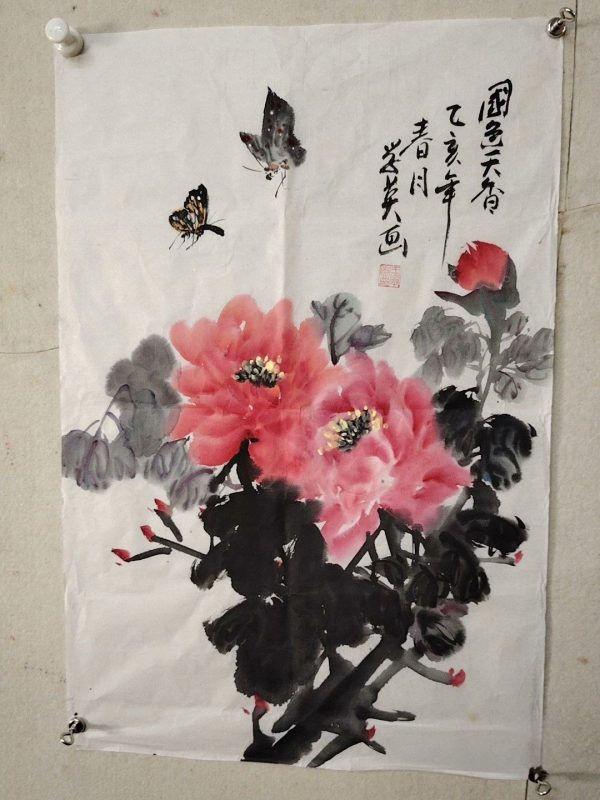 國色天香
乙亥年
春月
学英画